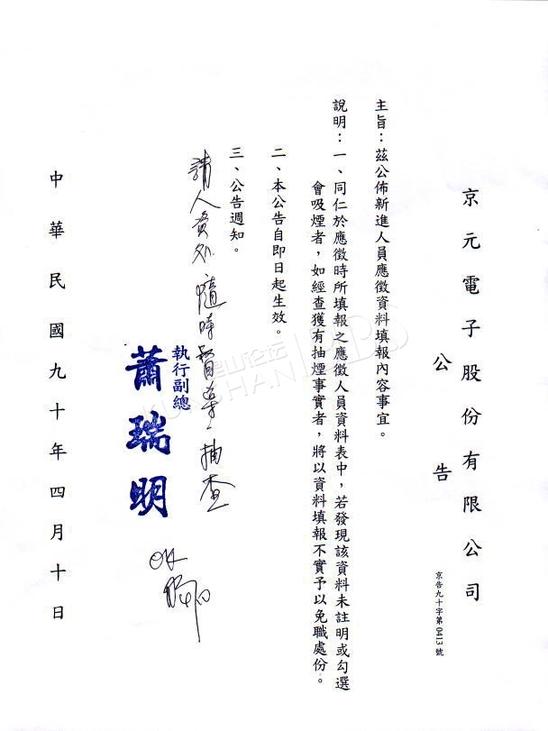 京元電子股份有限公司
公告
京告九十字第0413號
主旨：茲公佈新進人員應徵資料填報內容事宜。
說明：一、同仁於應徵時所填報之應徵人員資料表中，若發現該資料未註明或勾選
會吸煙者，如經查獲有抽煙事實者，將以資料填報不實予以免職處份。
二、本公告自即日起生效。
三、公告週知。
請人資處隨時抽查
執行副總
蕭瑞明
中華民國九十年四月十日